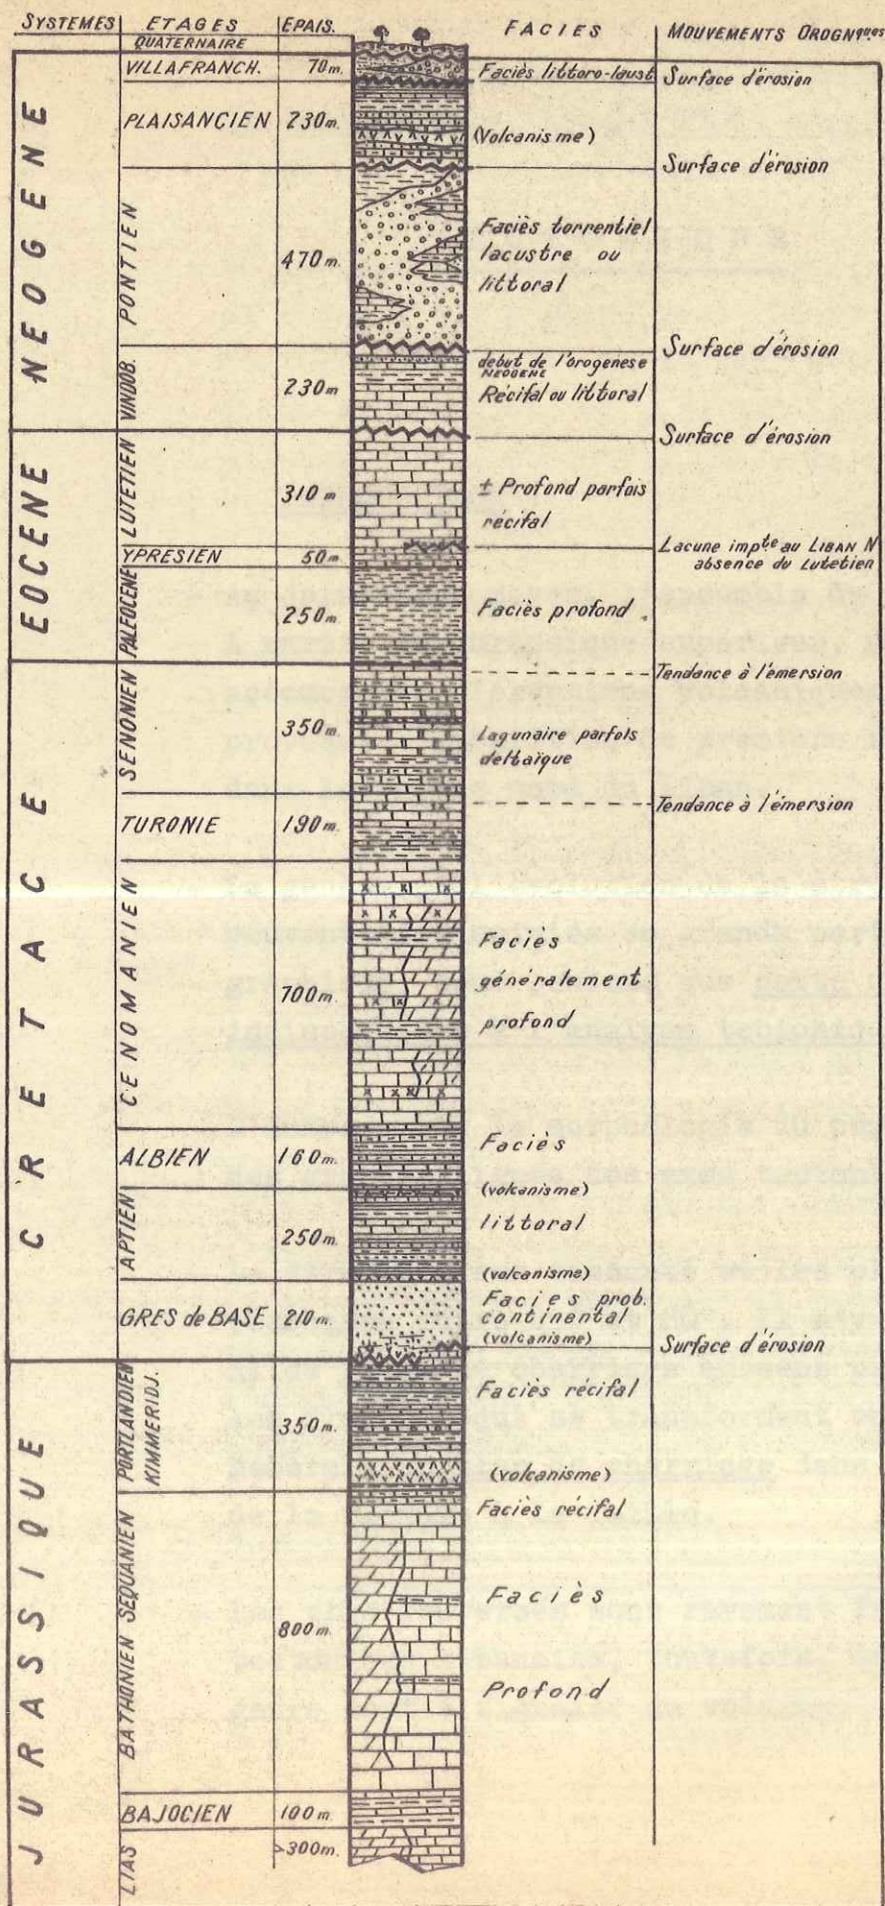 SYSTEMES ETAGES EPAIS. FACIES MOUVEMENTS OROGNques
QUATERNAIRE
NEOGENE
VILLAFRANCH. 70m. Faciès littoro-laust Surface d'érosion
PLAISANCIEN 230m. (Volcanisme)
Surface d'érosion
PONTIEN 470m. Faciès torrentiel
lacustre ou
littoral
Surface d'érosion
VINDOB. 230m debut de l'orogenese
NEOGENE
Récifal ou littoral
Surface d'érosion
EOCENE
LUTETIEN 310m ± Profond parfois
récifal
YPRESIEN 50m Lacune impte au LIBAN N
absence du Lutetien
PALEOCENE 250m. Faciès profond
Tendance à l'émersion
CRETACE
SENONIEN 350m. Lagunaire parfois
deltaïque
Tendance à l'émersion
TURONIE 190m.
CENOMANIEN 700m. Faciès
généralement
profond
ALBIEN 160m. Faciès
(volcanisme)
APTIEN 250m. littoral
(volcanisme)
GRES de BASE 210m. Facies prob.
continental
(volcanisme)
Surface d'érosion
JURASSIQUE
PORTLANDIEN
KIMMERIDJ. 350m. Faciès récifal
(volcanisme)
BATHONIEN SEQUANIEN 800m. Faciès récifal
Faciès
Profond
BAJOCIEN 100m.
LIAS >300m.